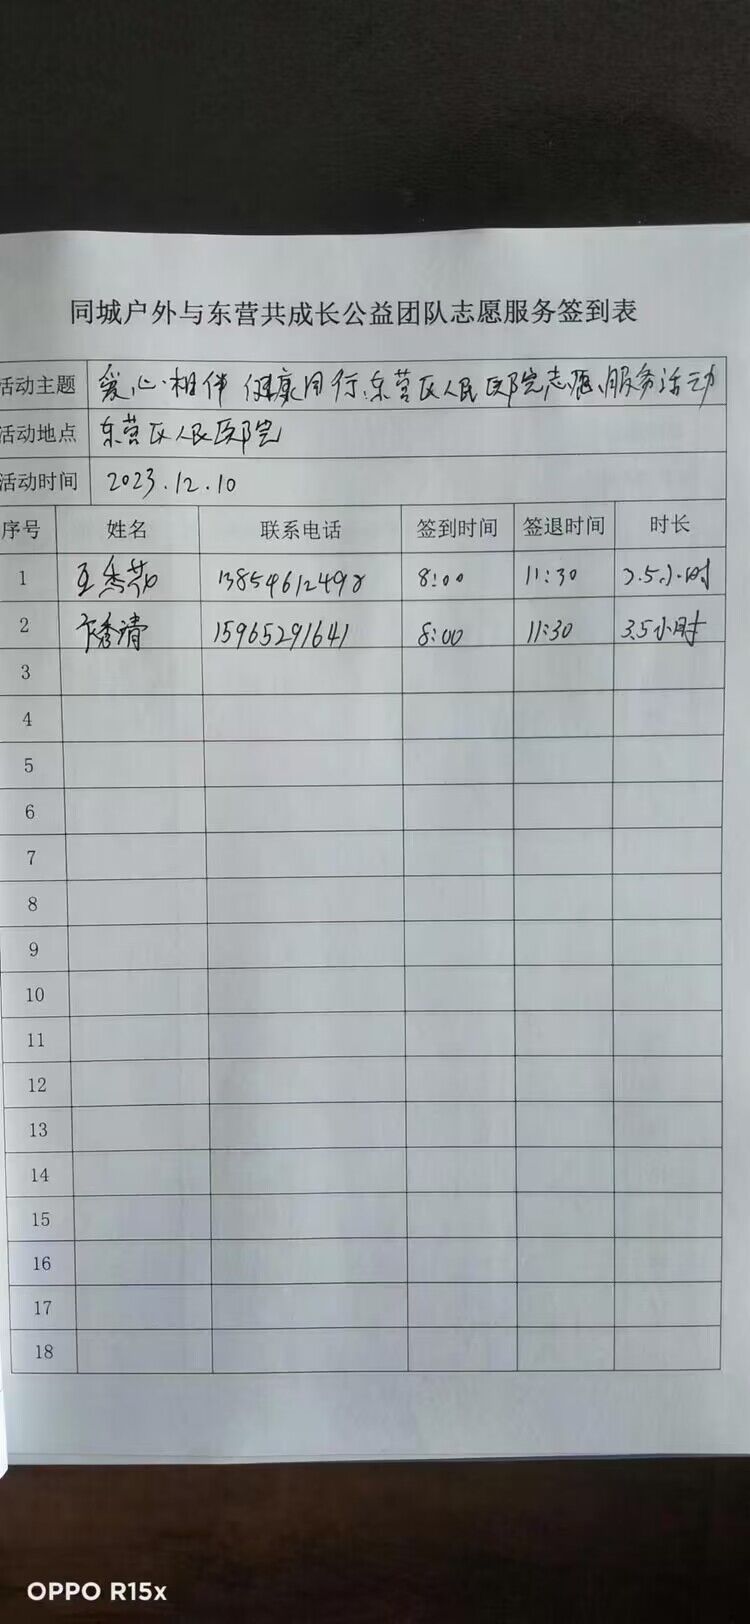 同城户外与东营共成长公益团队志愿服务签到表
活动主题 爱心相伴 健康同行,东营区人民医院志愿服务活动
活动地点 东营区人民医院
活动时间 2023.12.10
序号 姓名 联系电话 签到时间 签退时间 时长
1 王秀 13854612498 8:00 11:30 3.5小时
2 秀清 15965291641 8:00 11:30 3.5小时
3
4
5
6
7
8
9
10
11
12
13
14
15
16
17
18
OPPO R15x